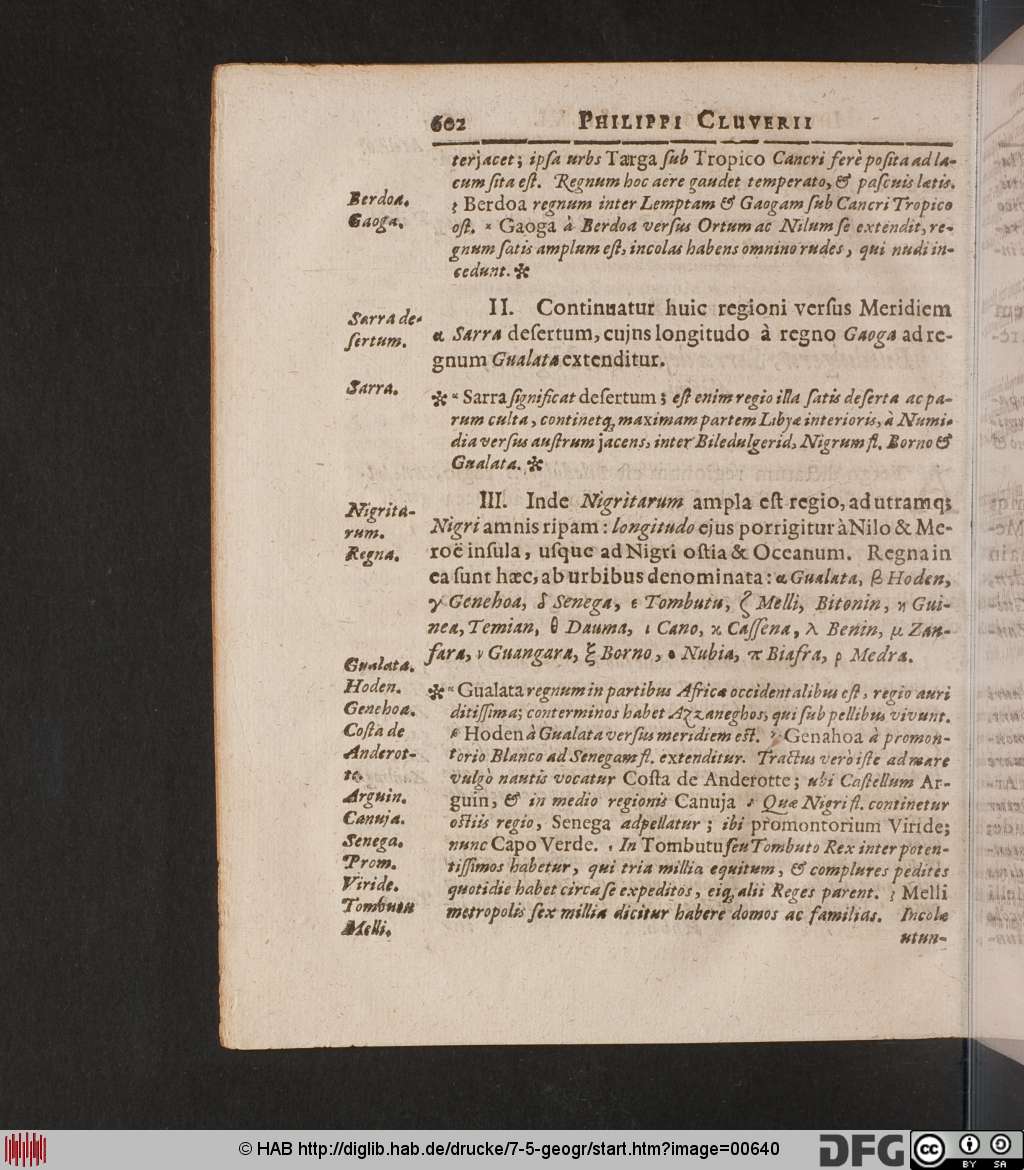 602 PHILIPPI CLUVERII
terjacet; ipſa urbs Targa ſub Tropico Cancri ferè poſita ad la-
cum ſita eſt. Regnum hoc aere gaudet temperato, & paſcuis lætis.
ζ Berdoa regnum inter Lemptam & Gaogam ſub Cancri Tropico
oſt. ϰ Gaoga à Berdoa verſus Ortum ac Nilum ſe extendit, re-
gnum ſatis amplum eſt, incolas habens omnino rudes, qui nudi in-
cedunt. ✲
Berdoa.
Gaoga.
II. Continuatur huic regioni verſus Meridiem
α Sarra deſertum, cujns longitudo à regno Gaoga ad re-
gnum Gualata extenditur.
Sarra de-
ſertum.
✲ α Sarra ſignificat deſertum; eſt enim regio illa ſatis deſerta ac pa-
rum culta, continetq; maximam partem Libyæ interioris, à Numi-
dia verſus auſtrum jacens, inter Biledulgerid, Nigrum fl. Borno &
Gualata. ✲
Sarra.
III. Inde Nigritarum ampla eſt regio, ad utramq;
Nigri amnis ripam: longitudo ejus porrigitur à Nilo & Me-
roë inſula, uſque ad Nigri oſtia & Oceanum. Regna in
ea ſunt hæc, ab urbibus denominata: α Gualata, β Hoden,
γ Genehoa, δ Senega, ε Tombutu, ζ Melli, Bitonin, η Gui-
nea, Temian, θ Dauma, ι Cano, ϰ Caſſena, λ Benin, μ Zan-
fara, ν Guangara, ξ Borno, ο Nubia, π Biafra, ρ Medra.
Nigrita-
rum.
Regna.
✲ α Gualata regnum in partibus Africæ occidentalibus eſt, regio auri
ditiſſima; conterminos habet Azzaneghos, qui ſub pellibus vivunt.
β Hoden à Gualata verſus meridiem eſt. γ Genahoa à promon-
torio Blanco ad Senegam fl. extenditur. Tractus verò iſte ad mare
vulgò nautis vocatur Coſta de Anderotte; ubi Caſtellum Ar-
guin, & in medio regionis Canuja δ Quæ Nigri fl. continetur
oſtiis regio, Senega adpellatur; ibi promontorium Viride;
nunc Capo Verde. ε In Tombutu ſeu Tombuto Rex inter poten-
tiſſimos habetur, qui tria millia equitum, & complures pedites
quotidie habet circa ſe expeditos, eiq; alii Reges parent. ζ Melli
metropolis ſex millia dicitur habere domos ac familias. Incolæ
utun-
Gualata.
Hoden.
Genehoa.
Coſta de
Anderot-
te.
Arguin.
Canuja.
Senega.
Prom.
Viride.
Tombutu
Melli.
© HAB http://diglib.hab.de/drucke/7-5-geogr/start.htm?image=00640
DFG
cc
BY SA